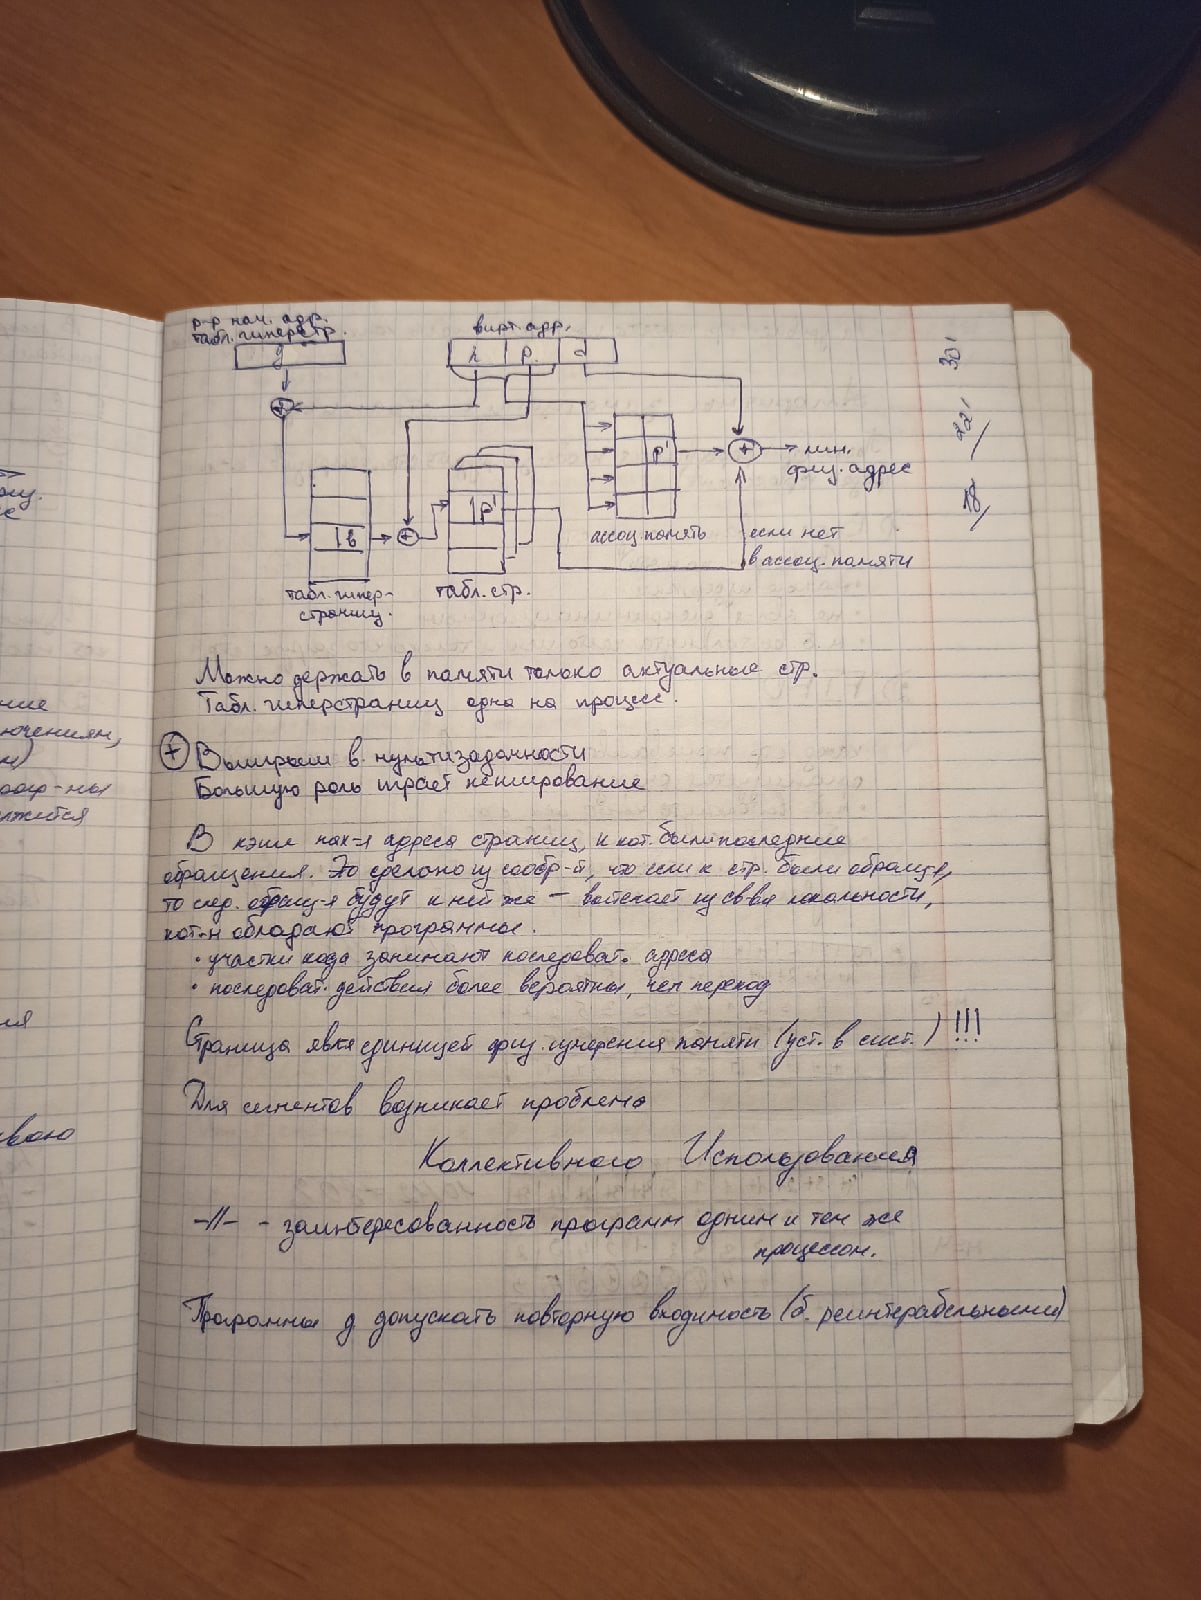 р-р нач. адр.
табл. гиперстр.
вирт. адр.
h p d
+
p'
+
лин.
физ. адрес
в
+
p'
ассоц. память
если нет
в ассоц. памяти
табл. гипер-
страниц.
табл. стр.
30'
22'
18'
Можно держать в памяти только актуальные стр.
Табл. гиперстраниц одна на процесс.
+ Выигрыш в мультизадачности
Большую роль играет кеширование
В кэше нах-я адреса страниц, к кот. были последние
обращения. Это сделано из сообр-й, что если к стр. были обращ-я,
то след. обращ-я будут к ней же – вытекает из св-ва локальности,
кот-м обладают программы.
• участки кода занимают последоват. адреса
• последоват. действия более вероятны, чем переход
Страница явл-ся единицей физ. измерения памяти (уст. в сист.) !!!
Для сегментов возникает проблема
Коллективного Использования
-//- - заинтересованность программ одним и тем же
процессом.
Программы д допускать повторную входимость (б. реинтерабельными)
ние
ючениям,
м)
оогр-ны
лжится
ия
вою